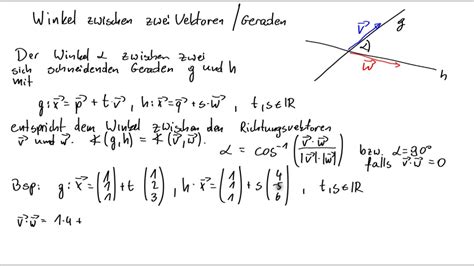 Winkel zwischen zwei Vektoren / Geraden
Der Winkel α zwischen zwei
sich schneidenden Geraden g und h
mit
g: x⃗ = p⃗ + t·v⃗ , h: x⃗ = q⃗ + s·w⃗ , t,s∈ℝ
entspricht dem Winkel zwischen den Richtungsvektoren
v⃗ und w⃗. ∢(g,h) = ∢(v⃗,w⃗).
α = cos⁻¹(v⃗·w⃗ / |v⃗|·|w⃗|) bzw. α=90°
falls v⃗·w⃗ = 0
Bsp: g: x⃗ = (1 1 1) + t (1 2 3), h: x⃗ = (1 1 1) + s (4 5 6) , t,s∈ℝ
v⃗·w⃗ = 1·4 +
v⃗
g
α
w⃗
h